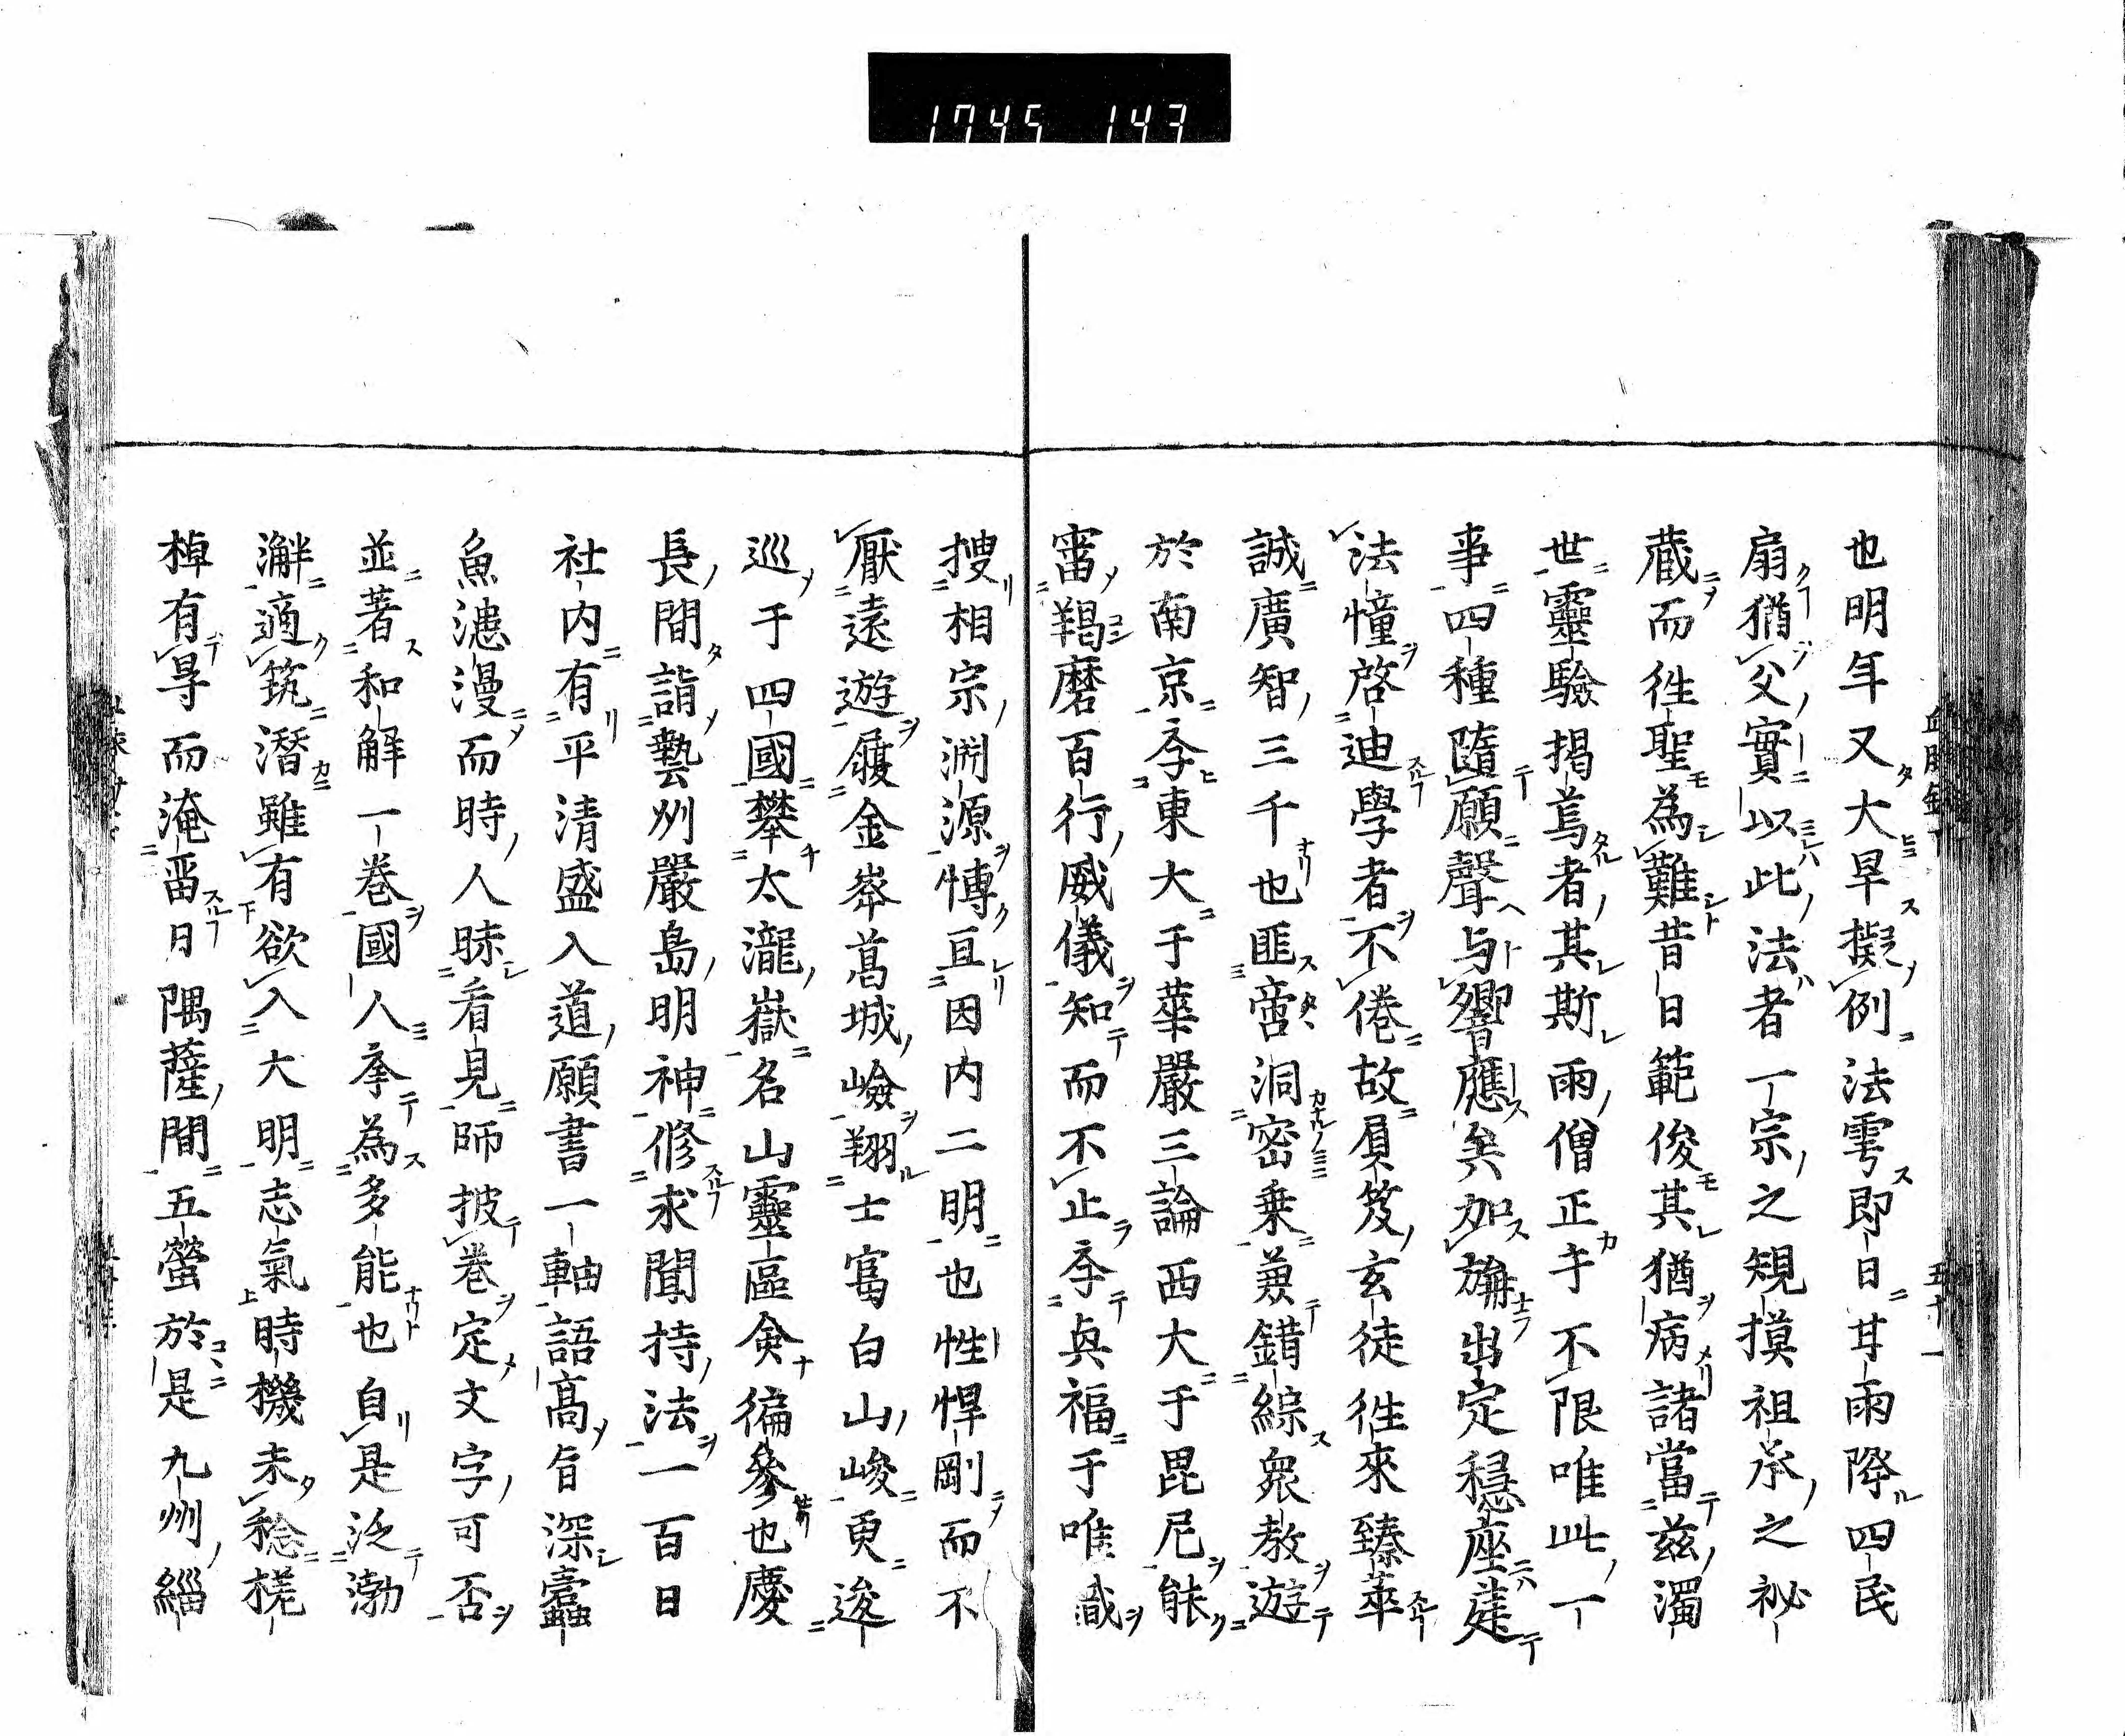 1745 143
也明年又大旱擬例法雩即日甘雨降四民
扇猶父實以此法者一宗之規摸祖承之祕
蔵而徃聖為難昔日範俊其猶病諸當茲濁
世靈驗掲焉者其斯雨僧正乎不限唯此一
事四種随願聲与響應矣加旃出定穏座莚
法憧啓迪學者不倦故負笈玄徒徃來臻萃
誠廣智三千也匪啻洞密乗兼錯綜衆教遊
於南京学東大于華嚴三論西大于毘尼能
審羯磨百行威儀知而不止学興福于唯識
搜相宗渕源博亘因内二明也性悍剛而不
厭遠遊履金峯葛城嶮翔士冨白山峻更逡
巡于四國攀太瀧嶽名山靈區僉徧参也慶
長間詣藝州嚴島明神修求聞持法一百日
社内有平清盛入道願書一軸語高旨深蠹
魚漶漫而時人昧看見師披巻定文字可否
並著和解一巻國人李為多能也自是泛渤
澥適筑潛雖有欲入大明志氣時機未稔槎
棹有㝵而淹留日隅薩間五螢於是九州緇
五十一